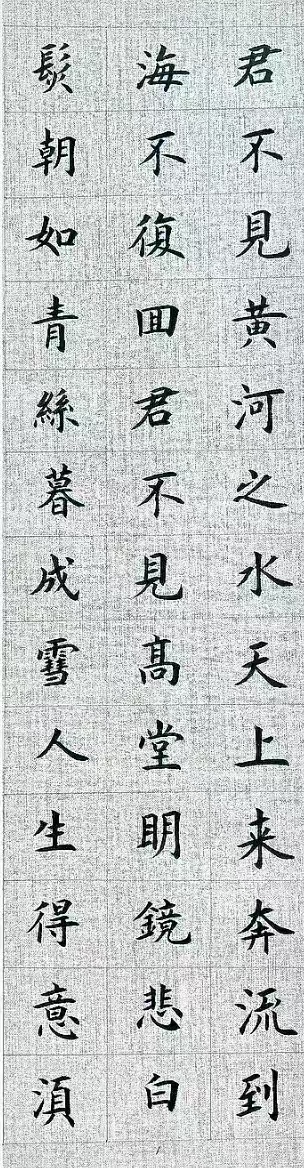 君不見黄河之水天上来奔流到
海不復囬君不見髙堂明鏡悲白
髮朝如青絲暮成雪人生得意湏